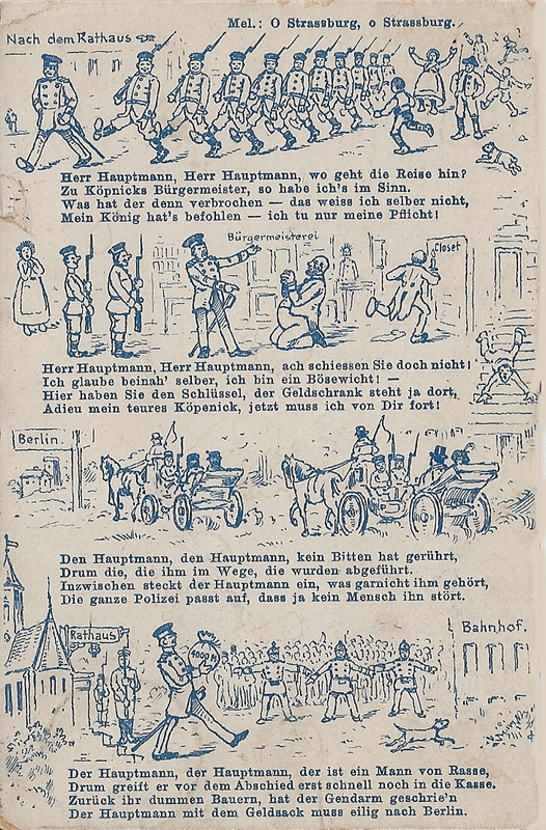 Mel.: O Strassburg, o Strassburg.
Nach dem Rathaus
Herr Hauptmann, Herr Hauptmann, wo geht die Reise hin?
Zu Köpnicks Bürgermeister, so habe ich's im Sinn.
Was hat der denn verbrochen — das weiss ich selber nicht,
Mein König hat's befohlen — ich tu nur meine Pflicht!
Bürgermeisterei
Closet
Herr Hauptmann, Herr Hauptmann, ach schiessen Sie doch nicht!
Ich glaube beinah' selber, ich bin ein Bösewicht! —
Hier haben Sie den Schlüssel, der Geldschrank steht ja dort,
Adieu mein teures Köpenick, jetzt muss ich von Dir fort!
Berlin.
Den Hauptmann, den Hauptmann, kein Bitten hat gerührt,
Drum die, die ihm im Wege, die wurden abgeführt.
Inzwischen steckt der Hauptmann ein, was garnicht ihm gehört,
Die ganze Polizei passt auf, dass ja kein Mensch ihn stört.
Rathaus
4000 M
Bahnhof.
Der Hauptmann, der Hauptmann, der ist ein Mann von Rasse,
Drum greift er vor dem Abschied erst schnell noch in die Kasse.
Zurück ihr dummen Bauern, hat der Gendarm geschrie'n
Der Hauptmann mit dem Geldsack muss eilig nach Berlin.